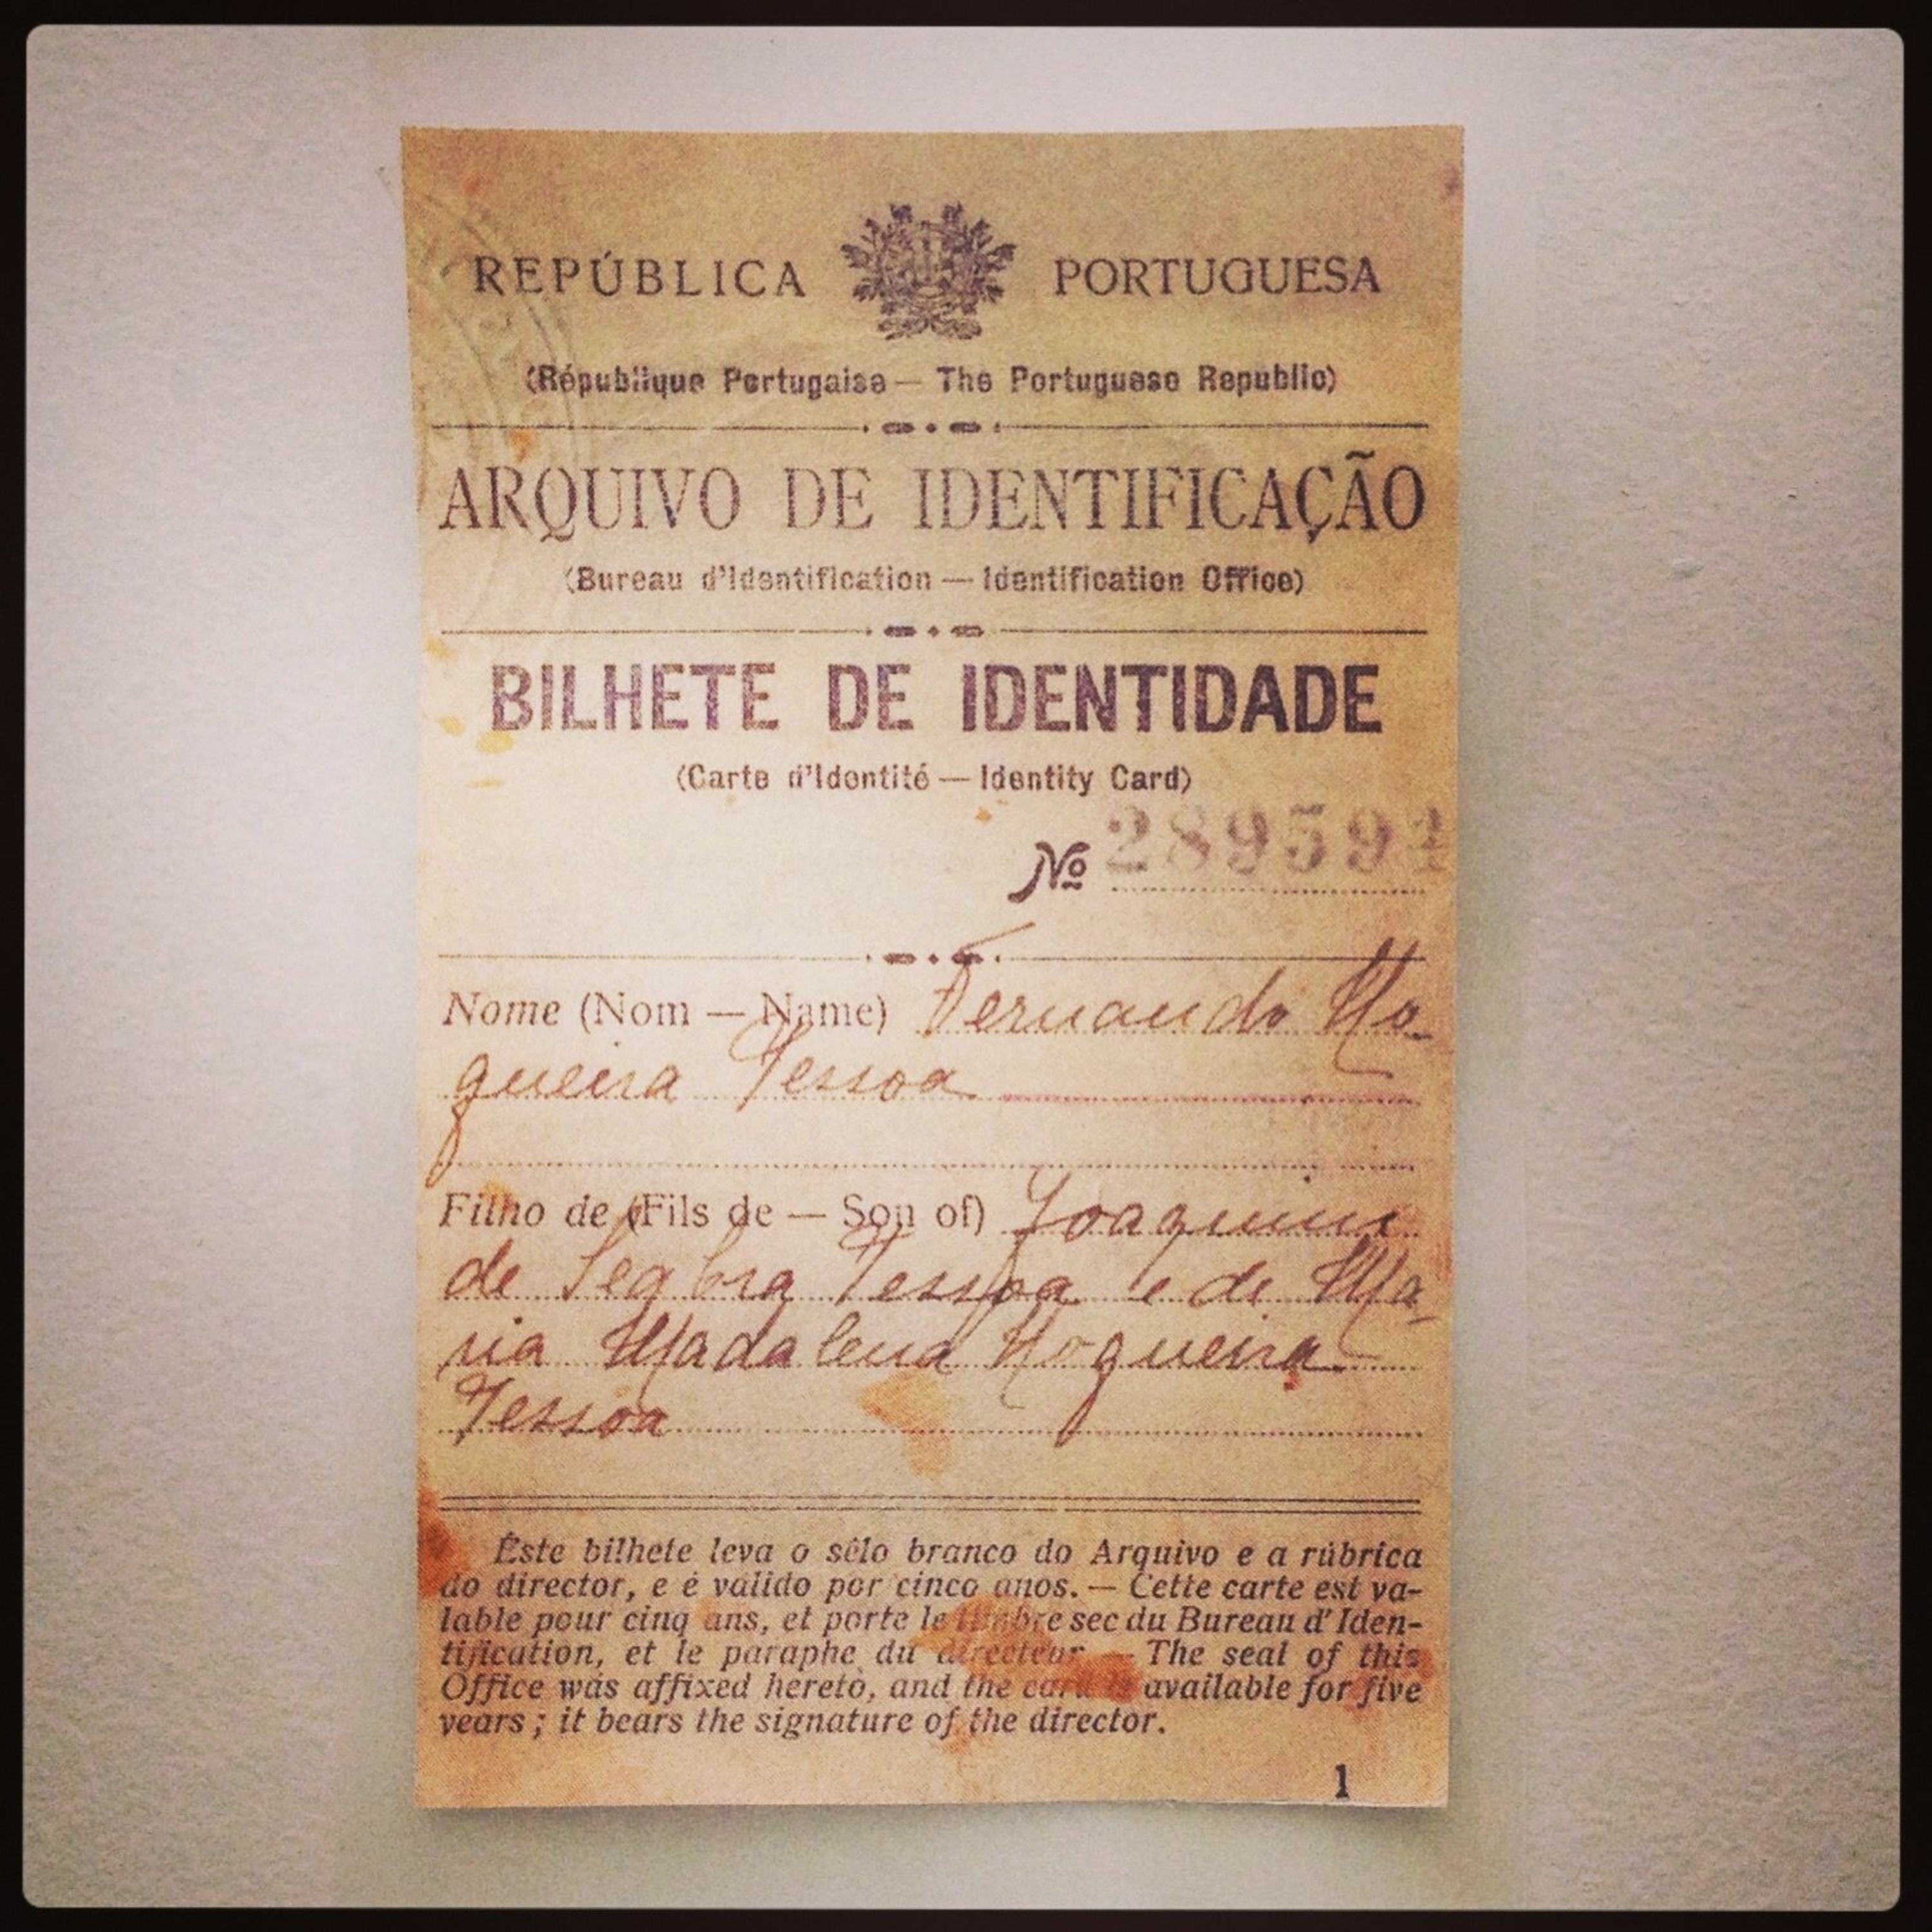 REPÚBLICA PORTUGUESA
(République Portugaise — The Portuguese Republic)
ARQUIVO DE IDENTIFICAÇÃO
(Bureau d'Identification — Identification Office)
BILHETE DE IDENTIDADE
(Carte d'Identité — Identity Card)
Nº 289594
Nome (Nom — Name) Fernando No-
gueira Pessoa
Filho de (Fils de — Son of) Joaquim
de Seabra Pessoa e de Ma-
ria Madalena Nogueira
Pessoa
Êste bilhete leva o sêlo branco do Arquivo e a rúbrica
do director, e é válido por cinco anos. — Cette carte est va-
lable pour cinq ans, et porte le timbre sec du Bureau d'Iden-
tification, et le paraphe du directeur. — The seal of this
Office was affixed hereto, and the card is available for five
years; it bears the signature of the director.
1